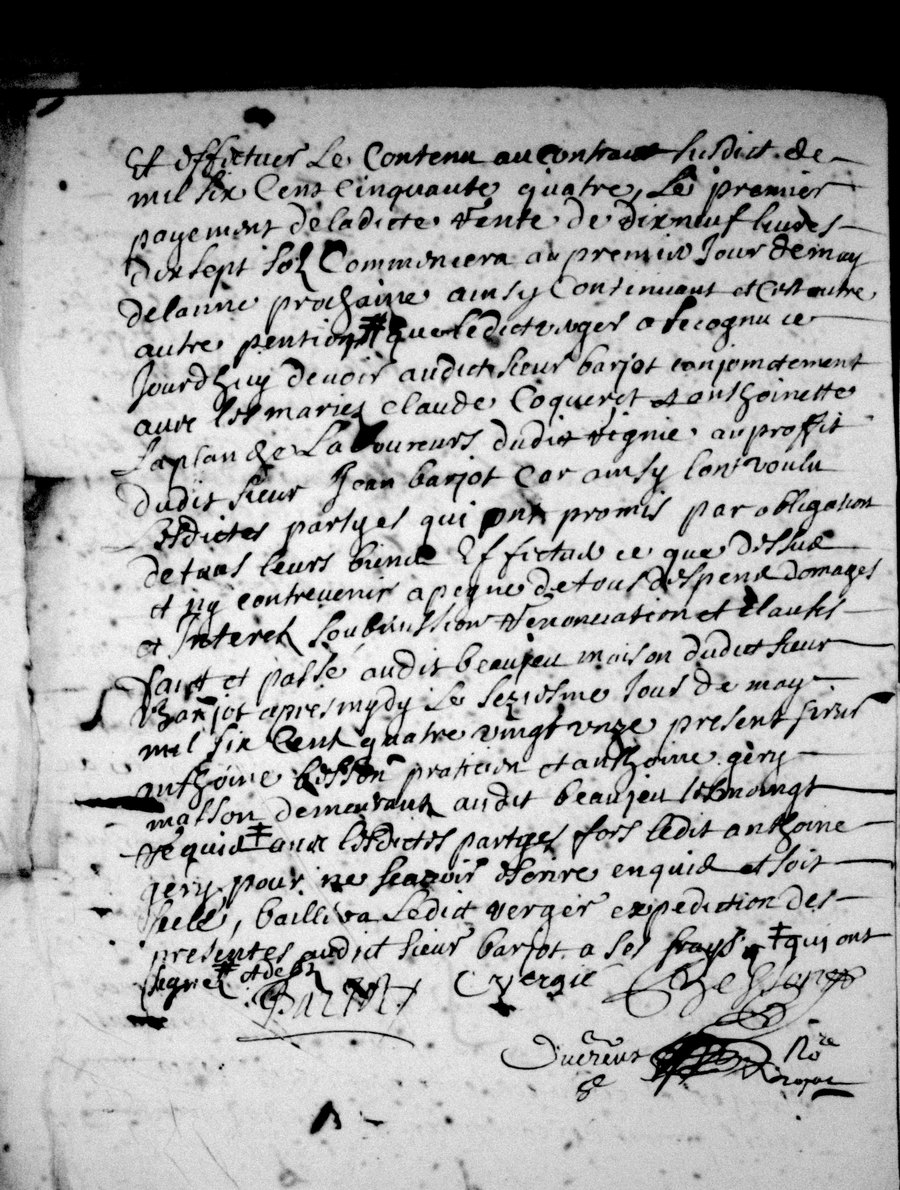 Et effectuer le contenu au contract susdict de
mil six cens cinquante quatre, le premier
payement de ladicte rente de dix neuf livres
dix sept solz commencera au premier jour de may
de lannee prochaine ainsy continuant et cest outre
autre pention # que ledict verger a recognu ce
jourdhuy devoir audict sieur barjot conjointement
avec les mariez claude Coqueret et anthoinette
Laplanche Laboureurs dudit vignie au proffit
dudit sieur Jean barjot Car ainsy lont voulu
Lesdictes partyes qui ont promis par obligation
de tous leurs biens Effectuer ce que dessus
et ny contrevenir a peyne de tous despens domages
et Interestz soubmission renonciation et clauses
faict et passé audit beaujeu maison dudict sieur
Barjot apres mydy le seziesme jour de may
mil six cent quatre vingt unze present sieur
anthoine besson praticien et anthoine gery
masson demeurantz audit beaujeu tesmoingt
requis ‡ avec lesdictes partyes fors ledit anthoine
gery pour ne scavoir escrire enquis et soit
scelé, bailliva ledict verger expedition des
presentes audict sieur barjot a ses frays ‡ qui ont
signé #
Barjot Vergié Besson
No.re
royal